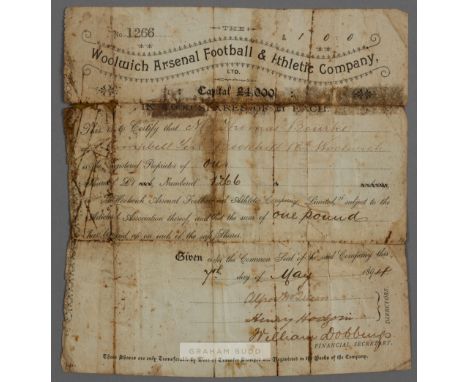 No. 1266
THE
£ 1 0 0
Woolwich Arsenal Football & Athletic Company,
LTD.
Capital £4,000
IN 4,000 SHARES OF £1 EACH.
This is to Certify that Mr Thomas Bourke
Campbell Brookhill Rd Woolwich
is the Registered Proprietor of One
Share of £1 Numbered 1266
in "The Woolwich Arsenal Football and Athletic Company, Limited," subject to the
Articles of Association thereof, and that the sum of one pound
has been paid up in each of the said Shares.
Given under the Common Seal of the said Company this
7th day of May 1894
DIRECTORS.
Henry
William Dobbings
FINANCIAL SECRETARY.
These Shares are only Transferable by Deed of Transfer Stamped and Registered in the Books of the Company.
GRAHAM BUDD